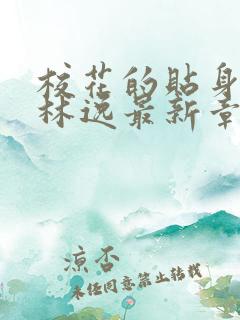 校花的贴身
林逸最新章
凉否
未经同意禁止转载